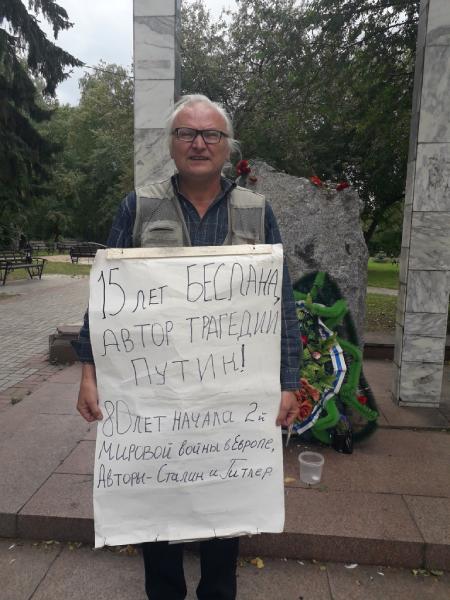 15 ЛЕТ БЕСЛАНА,
АВТОР ТРАГЕДИИ
ПУТИН!
80 ЛЕТ НАЧАЛА 2й
МИРОВОЙ ВОЙНЫ В ЕВРОПЕ,
АВТОРЫ-СТАЛИН И ГИТЛЕР